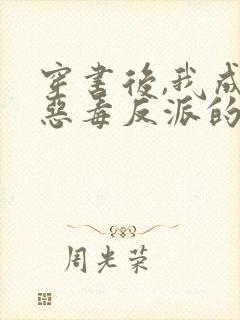 穿書後,我成
惡毒反派的
周光荣